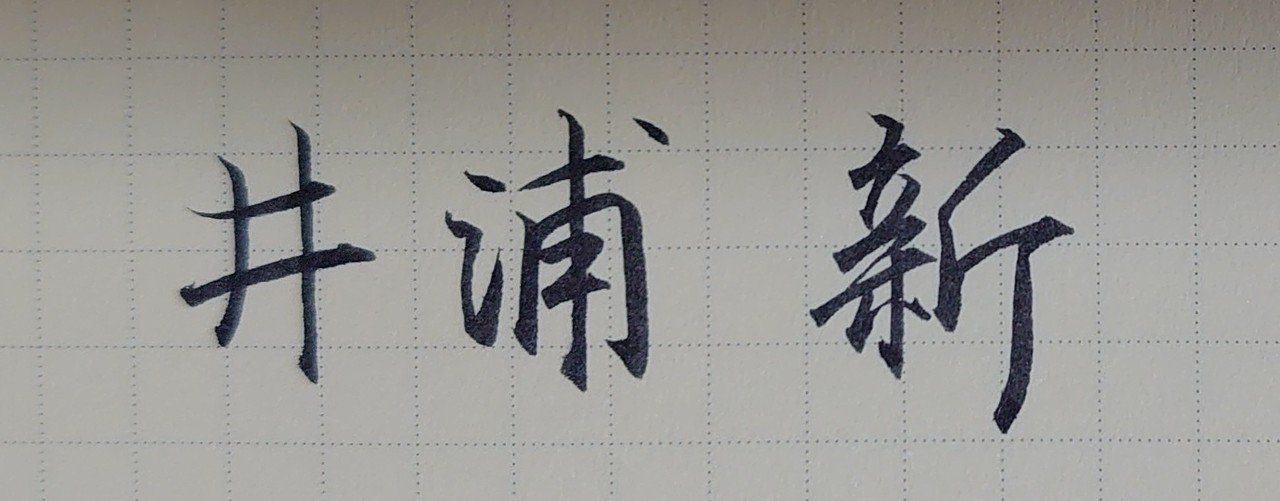 井浦新